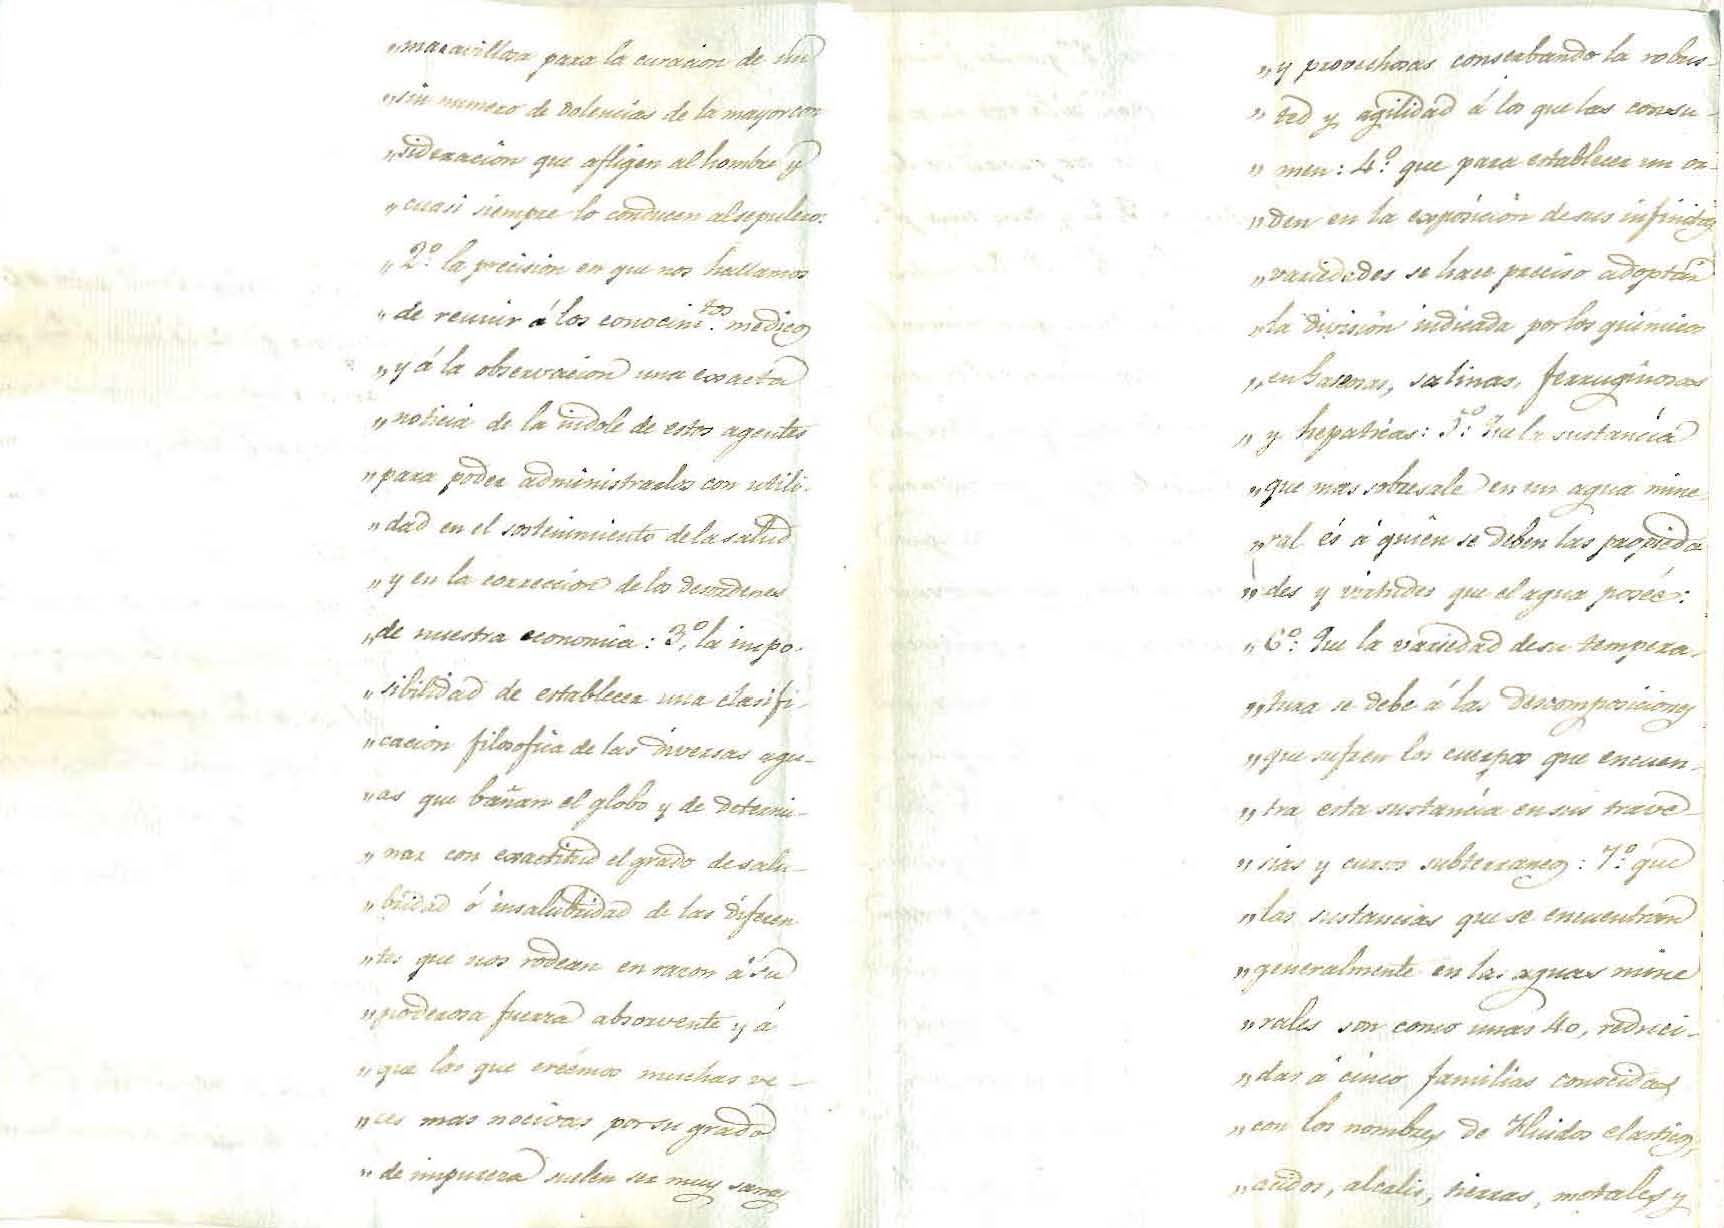 „maravillosa para la curacion de un
„sin numero de dolencias de la mayor con
„sideracion que afligen al hombre y
„cuasi siempre lo conducen al sepulcro:
„2º. la precision en que nos hallamos
„de reunir á los conocim.tos medicos
„y á la observacion una exacta
„noticia de la indole de estos agentes
„para poder administrarlos con utili-
„dad en el sostenimiento de la salud
„y en la correccion de los desordenes
„de nuestra economia: 3º, la impo-
„sibilidad de establecer una clasifi-
„cacion filosofica de las diversas agu-
„as que bañan el globo y de determi-
„nar con exactitud el grado de salu-
„bridad ó insalubridad de las diferen
„tes que nos rodean en razon á su
„poderosa fuerza absorvente y á
„que las que creémos muchas ve-
„ces mas nocivas por su grado
„de impureza suelen ser muy sanas
„y provechosas conserbando la robus-
„ted y agilidad á los que las consu-
„men: 4º. que para establecer un or-
„den en la exposicion de sus infinitas
„variedades se hace preciso adoptar
„la division indicada por los quimicos
„en gaseosas, salinas, ferruginosas
„y hepaticas: 5º. Que la sustancia
„que mas sobresale en un agua mine
„ral és á quien se deben las propieda
„des y virtudes que el agua poséé:
„6º: Que la variedad de su tempera-
„tura se debe á las descomposiciones
„que sufren los cuerpos que encuen-
„tra esta sustancia en sus trave-
„sias y curso subterraneo: 7º. que
„las sustancias que se encuentran
„generalmente en las aguas mine
„rales son como unas 40, reduci-
„das á cinco familias conocidas
„con los nombres de Fluidos elasticos,
„acidos, alcalis, tierras, metales y